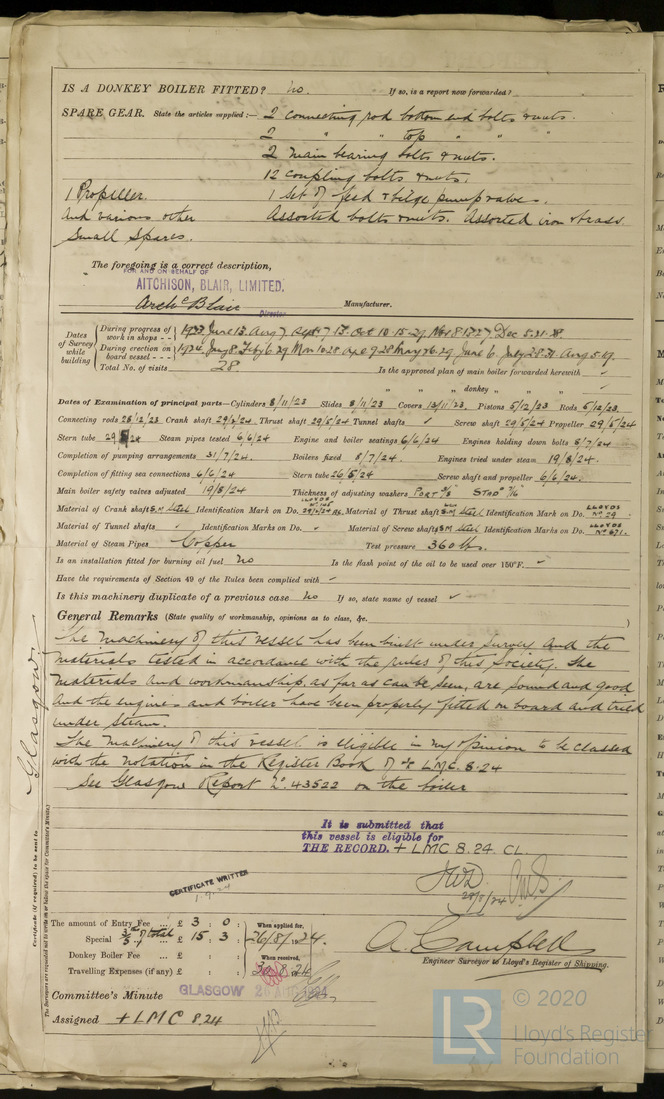 IS A DONKEY BOILER FITTED? no. If so, is a report now forwarded?
SPARE GEAR. State the articles supplied :— 2 connecting rod bottom end bolts & nuts.
2 " " top " " "
2 Main bearing bolts & nuts.
12 coupling bolts & nuts.
1 Propeller. 1 Set of feed & bilge pump valves.
And various other Assorted bolts & nuts. Assorted iron & brass.
Small Spares.
The foregoing is a correct description,
FOR AND ON BEHALF OF
AITCHISON, BLAIR, LIMITED.
Archd Blair Manufacturer.
Director
Dates of Survey while building
During progress of work in shops - - 1923 June 13. Aug 7. Sept 7. 13. Oct 10. 15. 29. Nov 8. 13. 27. Dec 5. 21. 28.
During erection on board vessel - - - 1924. Jan 8. Feb 6. 29. Mar 10. 28. Apl 9. 28 May 26. 29. June 6. July 28. 31. Aug 5. 19.
Total No. of visits 28 Is the approved plan of main boiler forwarded herewith ✓
" " " donkey " " ✓
Dates of Examination of principal parts—Cylinders 8/11/23 Slides 8/11/23 Covers 13/11/23. Pistons 5/12/23 Rods 5/12/23.
Connecting rods 28/12/23 Crank shaft 29/2/24 Thrust shaft 29/5/24 Tunnel shafts ✓ Screw shaft 29/5/24 Propeller 29/5/24
Stern tube 29/5/24 Steam pipes tested 6/6/24 Engine and boiler seatings 6/6/24 Engines holding down bolts 8/7/24.
Completion of pumping arrangements 31/7/24. Boilers fixed 8/7/24. Engines tried under steam 19/8/24.
Completion of fitting sea connections 6/6/24 Stern tube 26/5/24 Screw shaft and propeller 6/6/24.
Main boiler safety valves adjusted 19/8/24 Thickness of adjusting washers PORT STBD
Material of Crank shaft S.M. Steel Identification Mark on Do. LLOYDS 29/2/24 Material of Thrust shaft S.M. Steel Identification Mark on Do. LLOYDS No 29.
Material of Tunnel shafts ✓ Identification Marks on Do. ✓ Material of Screw shafts S.M. Steel Identification Marks on Do. LLOYDS No 671.
Material of Steam Pipes Copper Test pressure 360 lbs.
Is an installation fitted for burning oil fuel no Is the flash point of the oil to be used over 150°F. ✓
Have the requirements of Section 49 of the Rules been complied with ✓
Is this machinery duplicate of a previous case no If so, state name of vessel ✓
General Remarks (State quality of workmanship, opinions as to class, &c. )
The Machinery of this vessel has been built under survey and the
materials tested in accordance with the rules of this Society. The
materials and workmanship, as far as can be seen, are sound and good
and the engines and boiler have been properly fitted on board and tried
under steam.
The Machinery of this vessel is eligible in my opinion to be classed
with the notation in the Register Book of + LMC. 8.24
See Glasgow Report No. 43522 on the boiler
It is submitted that
this vessel is eligible for
THE RECORD. + LMC 8.24 CL.
28/8/24
CERTIFICATE WRITTEN
1-9-24
The amount of Entry Fee ... £ 3 : 0 : When applied for,
Special 3/5 of total £ 15 : 3 : 26/8/1924.
Donkey Boiler Fee ... £ : : When received,
Travelling Expenses (if any) £ : : 30.8.24
A. Campbell
Engineer Surveyor to Lloyd's Register of Shipping.
Committee's Minute GLASGOW 26 AUG 1924
Assigned + LMC 8.24
Glasgow.
Certificate (if required) to be sent to
The Surveyors are requested not to write on or below the space for Committee's Minute.
LR
© 2020
Lloyd's Register
Foundation